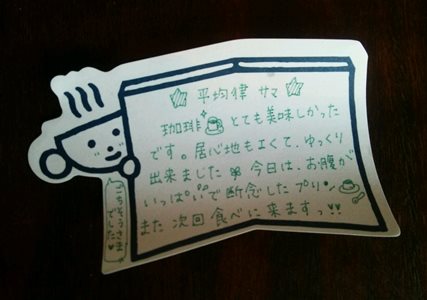 平均律 サマ
珈琲 とても美味しかった
です。居心地も良くて、ゆっくり
出来ました 今日は、お腹が
いっぱいで断念したプリン
また次回食べに来ますっ♥♥
ごちそうさま
でした♥